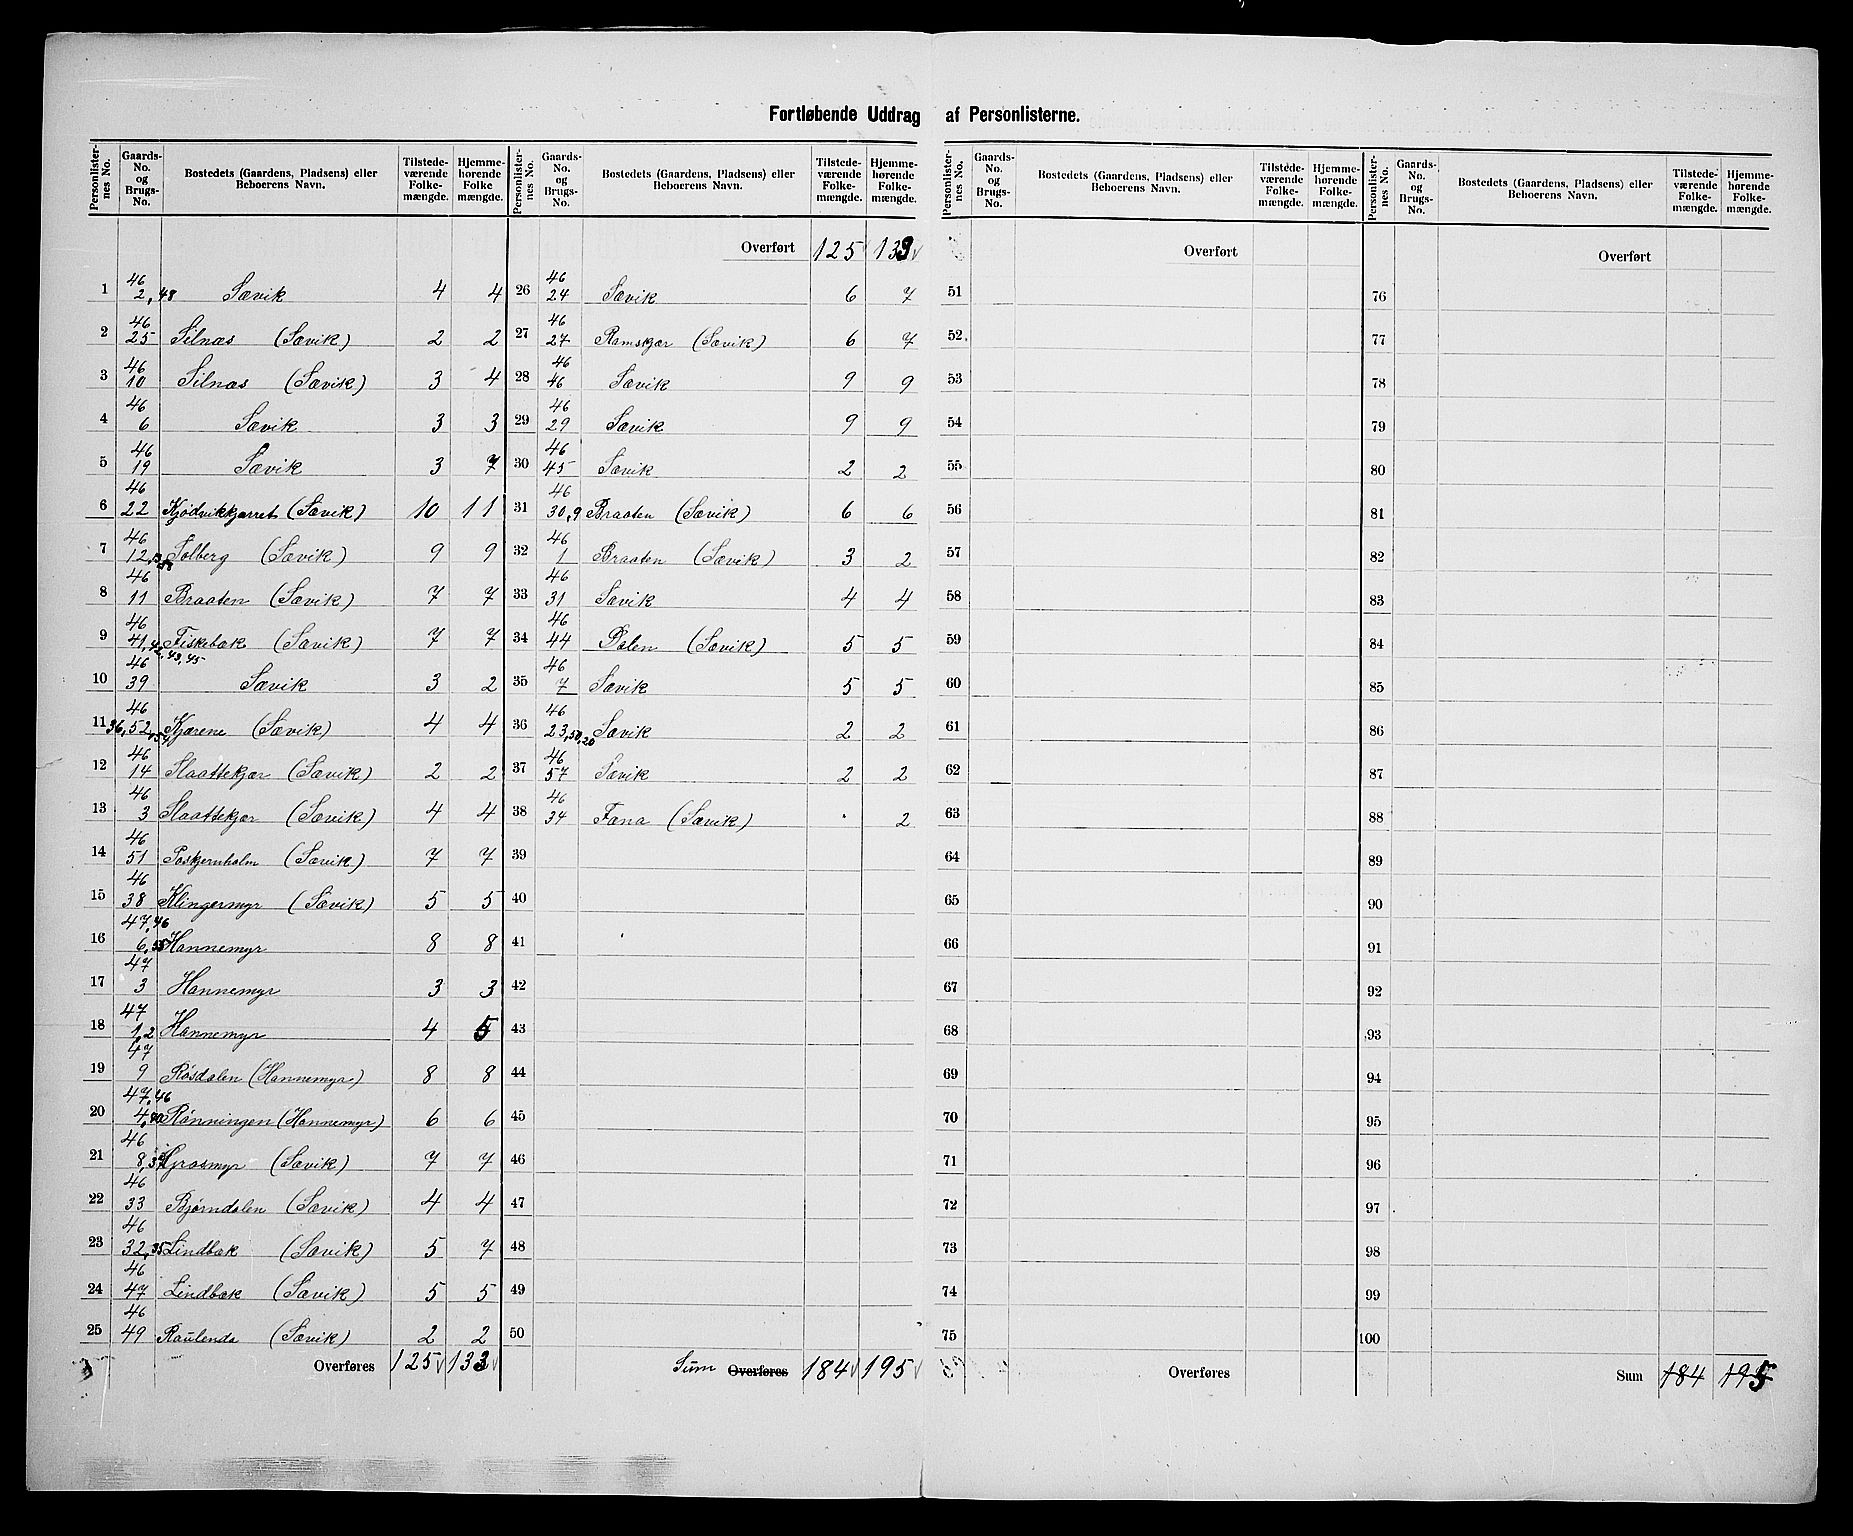 Fortløbende Uddrag af Personlisterne.
Personlisternes No. | Gaards-No. og Brugs-No. | Bostedets (Gaardens, Pladsens) eller Beboerens Navn. | Tilstedeværende Folkemængde. | Hjemmehørende Folkemængde.
Personlisternes No. | Gaards-No. og Brugs-No. | Bostedets (Gaardens, Pladsens) eller Beboerens Navn. | Tilstedeværende Folkemængde. | Hjemmehørende Folkemængde.
Personlisternes No. | Gaards-No. og Brugs-No. | Bostedets (Gaardens, Pladsens) eller Beboerens Navn. | Tilstedeværende Folkemængde. | Hjemmehørende Folkemængde.
Personlisternes No. | Gaards-No. og Brugs-No. | Bostedets (Gaardens, Pladsens) eller Beboerens Navn. | Tilstedeværende Folkemængde. | Hjemmehørende Folkemængde.
1 46 2,48 Sævik 4 4
2 46 25 Silnæs (Sævik) 2 2
3 46 10 Silnæs (Sævik) 3 4
4 46 6 Sævik 3 3
5 46 19 Sævik 3 7
6 46 22 Kjødvikkjærret (Sævik) 10 11
7 46 12, Solberg (Sævik) 9 9
8 46 11 Braaten (Sævik) 7 7
9 46 41,42,43,45 Fiskebæk (Sævik) 7 7
10 46 39 Sævik 3 2
11 46 36,52,54 Kjærene (Sævik) 4 4
12 46 14 Slaattekjær (Sævik) 2 2
13 46 3 Slaattekjær (Sævik) 4 4
14 46 51 Paskjernholm (Sævik) 7 7
15 46 38 Klingermyr (Sævik) 5 5
16 47,46 6,55 Hannemyr 8 8
17 47 3 Hannemyr 3 3
18 47 1,2 Hannemyr 4 5
19 47 9 Røsdalen (Hannemyr) 8 8
20 47,46 4, Rønningen (Hannemyr) 6 6
21 46 8,37 Græsmyr (Sævik) 7 7
22 46 33 Bjørndalen (Sævik) 4 4
23 46 32,35 Lindbæk (Sævik) 5 7
24 46 47 Lindbæk (Sævik) 5 5
25 46 49 Raulenda (Sævik) 2 2
Overføres 125 133
Overført 125 133
26 46 24 Sævik 6 7
27 46 27 Ramskjær (Sævik) 6 7
28 46 46 Sævik 9 9
29 46 29 Sævik 9 9
30 46 45 Sævik 2 2
31 46 30,9 Braaten (Sævik) 6 6
32 46 1 Braaten (Sævik) 3 2
33 46 31 Sævik 4 4
34 46 44 Dalen (Sævik) 5 5
35 46 7 Sævik 5 5
36 46 23,50,20 Sævik 2 2
37 46 57 Sævik 2 2
38 46 34 Fana (Sævik) . 2
39
40
41
42
43
44
45
46
47
48
49
50
Sum Overføres 184 195
Overført
51
52
53
54
55
56
57
58
59
60
61
62
63
64
65
66
67
68
69
70
71
72
73
74
75
Overføres
Overført
76
77
78
79
80
81
82
83
84
85
86
87
88
89
90
91
92
93
94
95
96
97
98
99
100
Sum 184 195